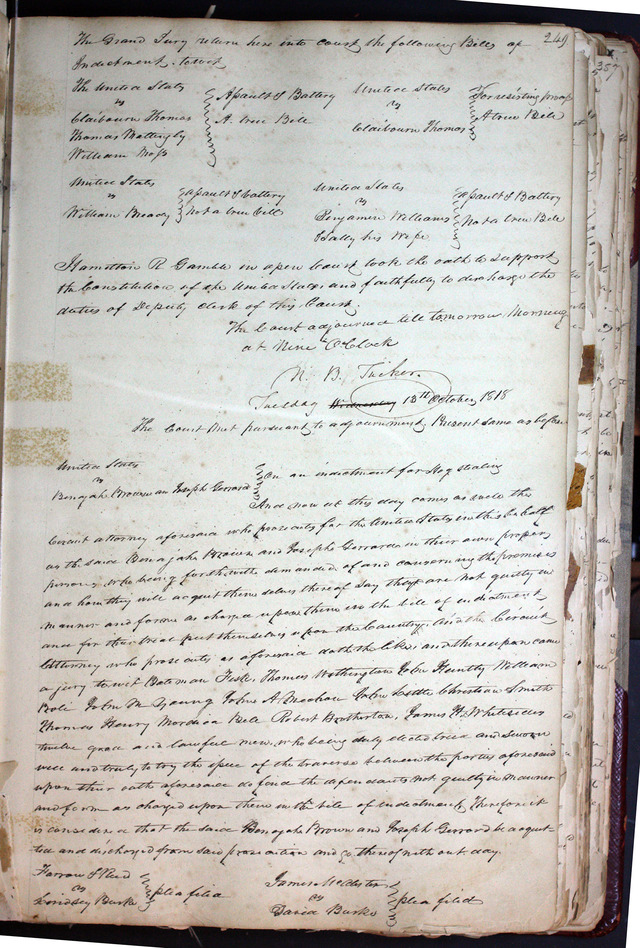 249
The Grand Jury return here into court the following Bills of
Indictment towit
The United States
vs
Claibourn Thomas
Thomas Mattingby
William Moss
Assault & Battery
A true Bill
United States
vs
Claibourn Thomas
For resisting process
A true Bill
United States
vs
William Bready
assault & battery
not a true bill
United States
vs
Benjamin Williams
& Sally his Wife
assault & Battery
Not a true Bill
Hamilton R Gamble in open Court took the oath to Support
the Constitution of the United States and faithfully to discharge the
duties of Deputy Clerk of this Court.
The Court adjourned till tomorrow Morning
at Nine O'Clock
N. B. Tucker.
Tuesday Wednesday 13th October, 1818
The Court Met pursuant to adjournment, Present same as before
United States
vs
Benajah Brown an Joseph Gerrard
On an indictment for Hog stealing
And now at this day comes as well the
Circuit attorney aforesaid who prosecutes for the United States in this behalf
as the said Benajah Brown and Joseph Gerrard in their own proper
persons, who being forthwith demanded of and concerning the premises
and how they will acquit themselves thereof say they are not guilty in
manner and form as charged upon them in the bill of indictment
and for their trial put themselves upon the Country, and the Circuit
Attorney who prosecutes as aforesaid doth the like, and thereupon came
a jury to wit Bateman Fisk, Thomas Withington John Huntly William
Bole John M Young John A. Beachau John Little Christian Smith
Thomas Henry Mordica Bell Robert Brotherton, James H. Whitesides
twelve good and lawful men, who being duly elected tried and sworn
well and truly to try the issue of the traverse between the parties aforesaid
upon their oath aforesaid do find the defendants not guilty in manner
and form as charged upon them in the bill of indictment, Therefore it
is considered that the said Benajah Brown and Joseph Gerrard be acquit-
ted and discharged from said prosecution and go thereof without day.
Farrow & Reid
vs
Lindsey Burke
plea filed
James McAlister
vs
David Burke
plea filed